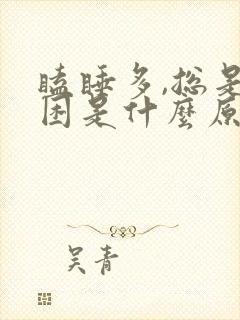 瞌睡多,总是
困是什麼原
吴青